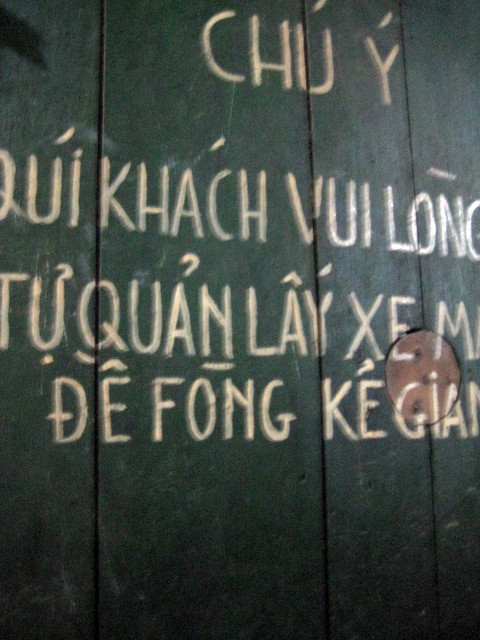 CHÚ Ý
QUÍ KHÁCH VUI LÒNG
TỰ QUẢN LẤY XE MÁ
ĐÊ FÒNG KẺ GIAN